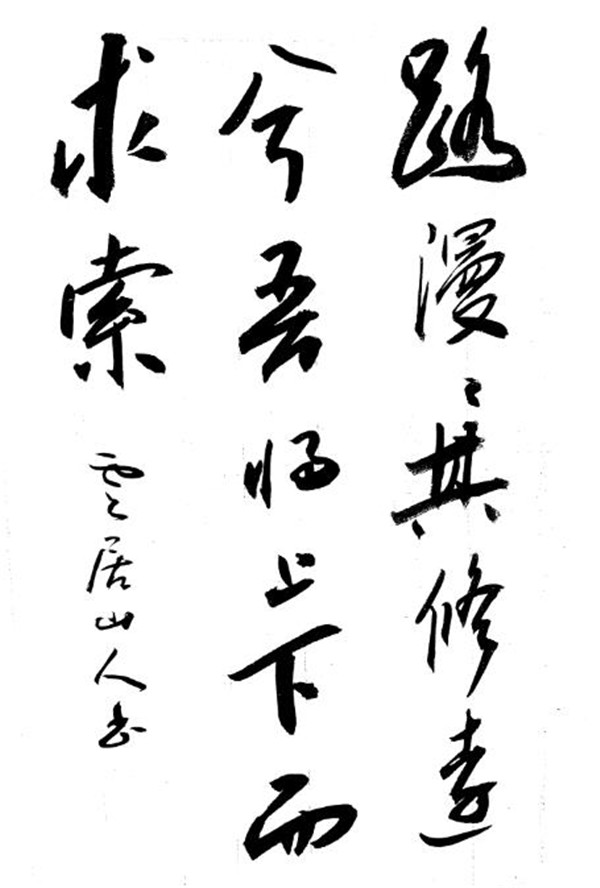 路漫〻其修遠
兮吾将上下而
求索
雲居山人书